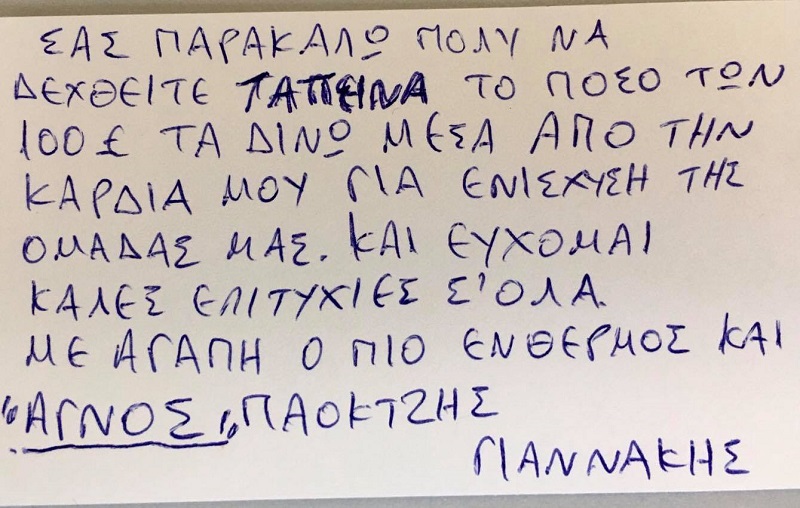 ΣΑΣ ΠΑΡΑΚΑΛΩ ΠΟΛΥ ΝΑ
ΔΕΧΘΕΙΤΕ ΤΑΠΕΙΝΑ ΤΟ ΠΟΣΟ ΤΩΝ
100£ ΤΑ ΔΙΝΩ ΜΕΣΑ ΑΠΟ ΤΗΝ
ΚΑΡΔΙΑ ΜΟΥ ΓΙΑ ΕΝΙΣΧΥΣΗ ΤΗΣ
ΟΜΑΔΑΣ ΜΑΣ. ΚΑΙ ΕΥΧΟΜΑΙ
ΚΑΛΕΣ ΕΠΙΤΥΧΙΕΣ Σ'ΟΛΑ.
ΜΕ ΑΓΑΠΗ Ο ΠΙΟ ΕΝΘΕΡΜΟΣ ΚΑΙ
"ΑΓΝΟΣ" ΠΑΟΚΤΖΗΣ
ΓΙΑΝΝΑΚΗΣ